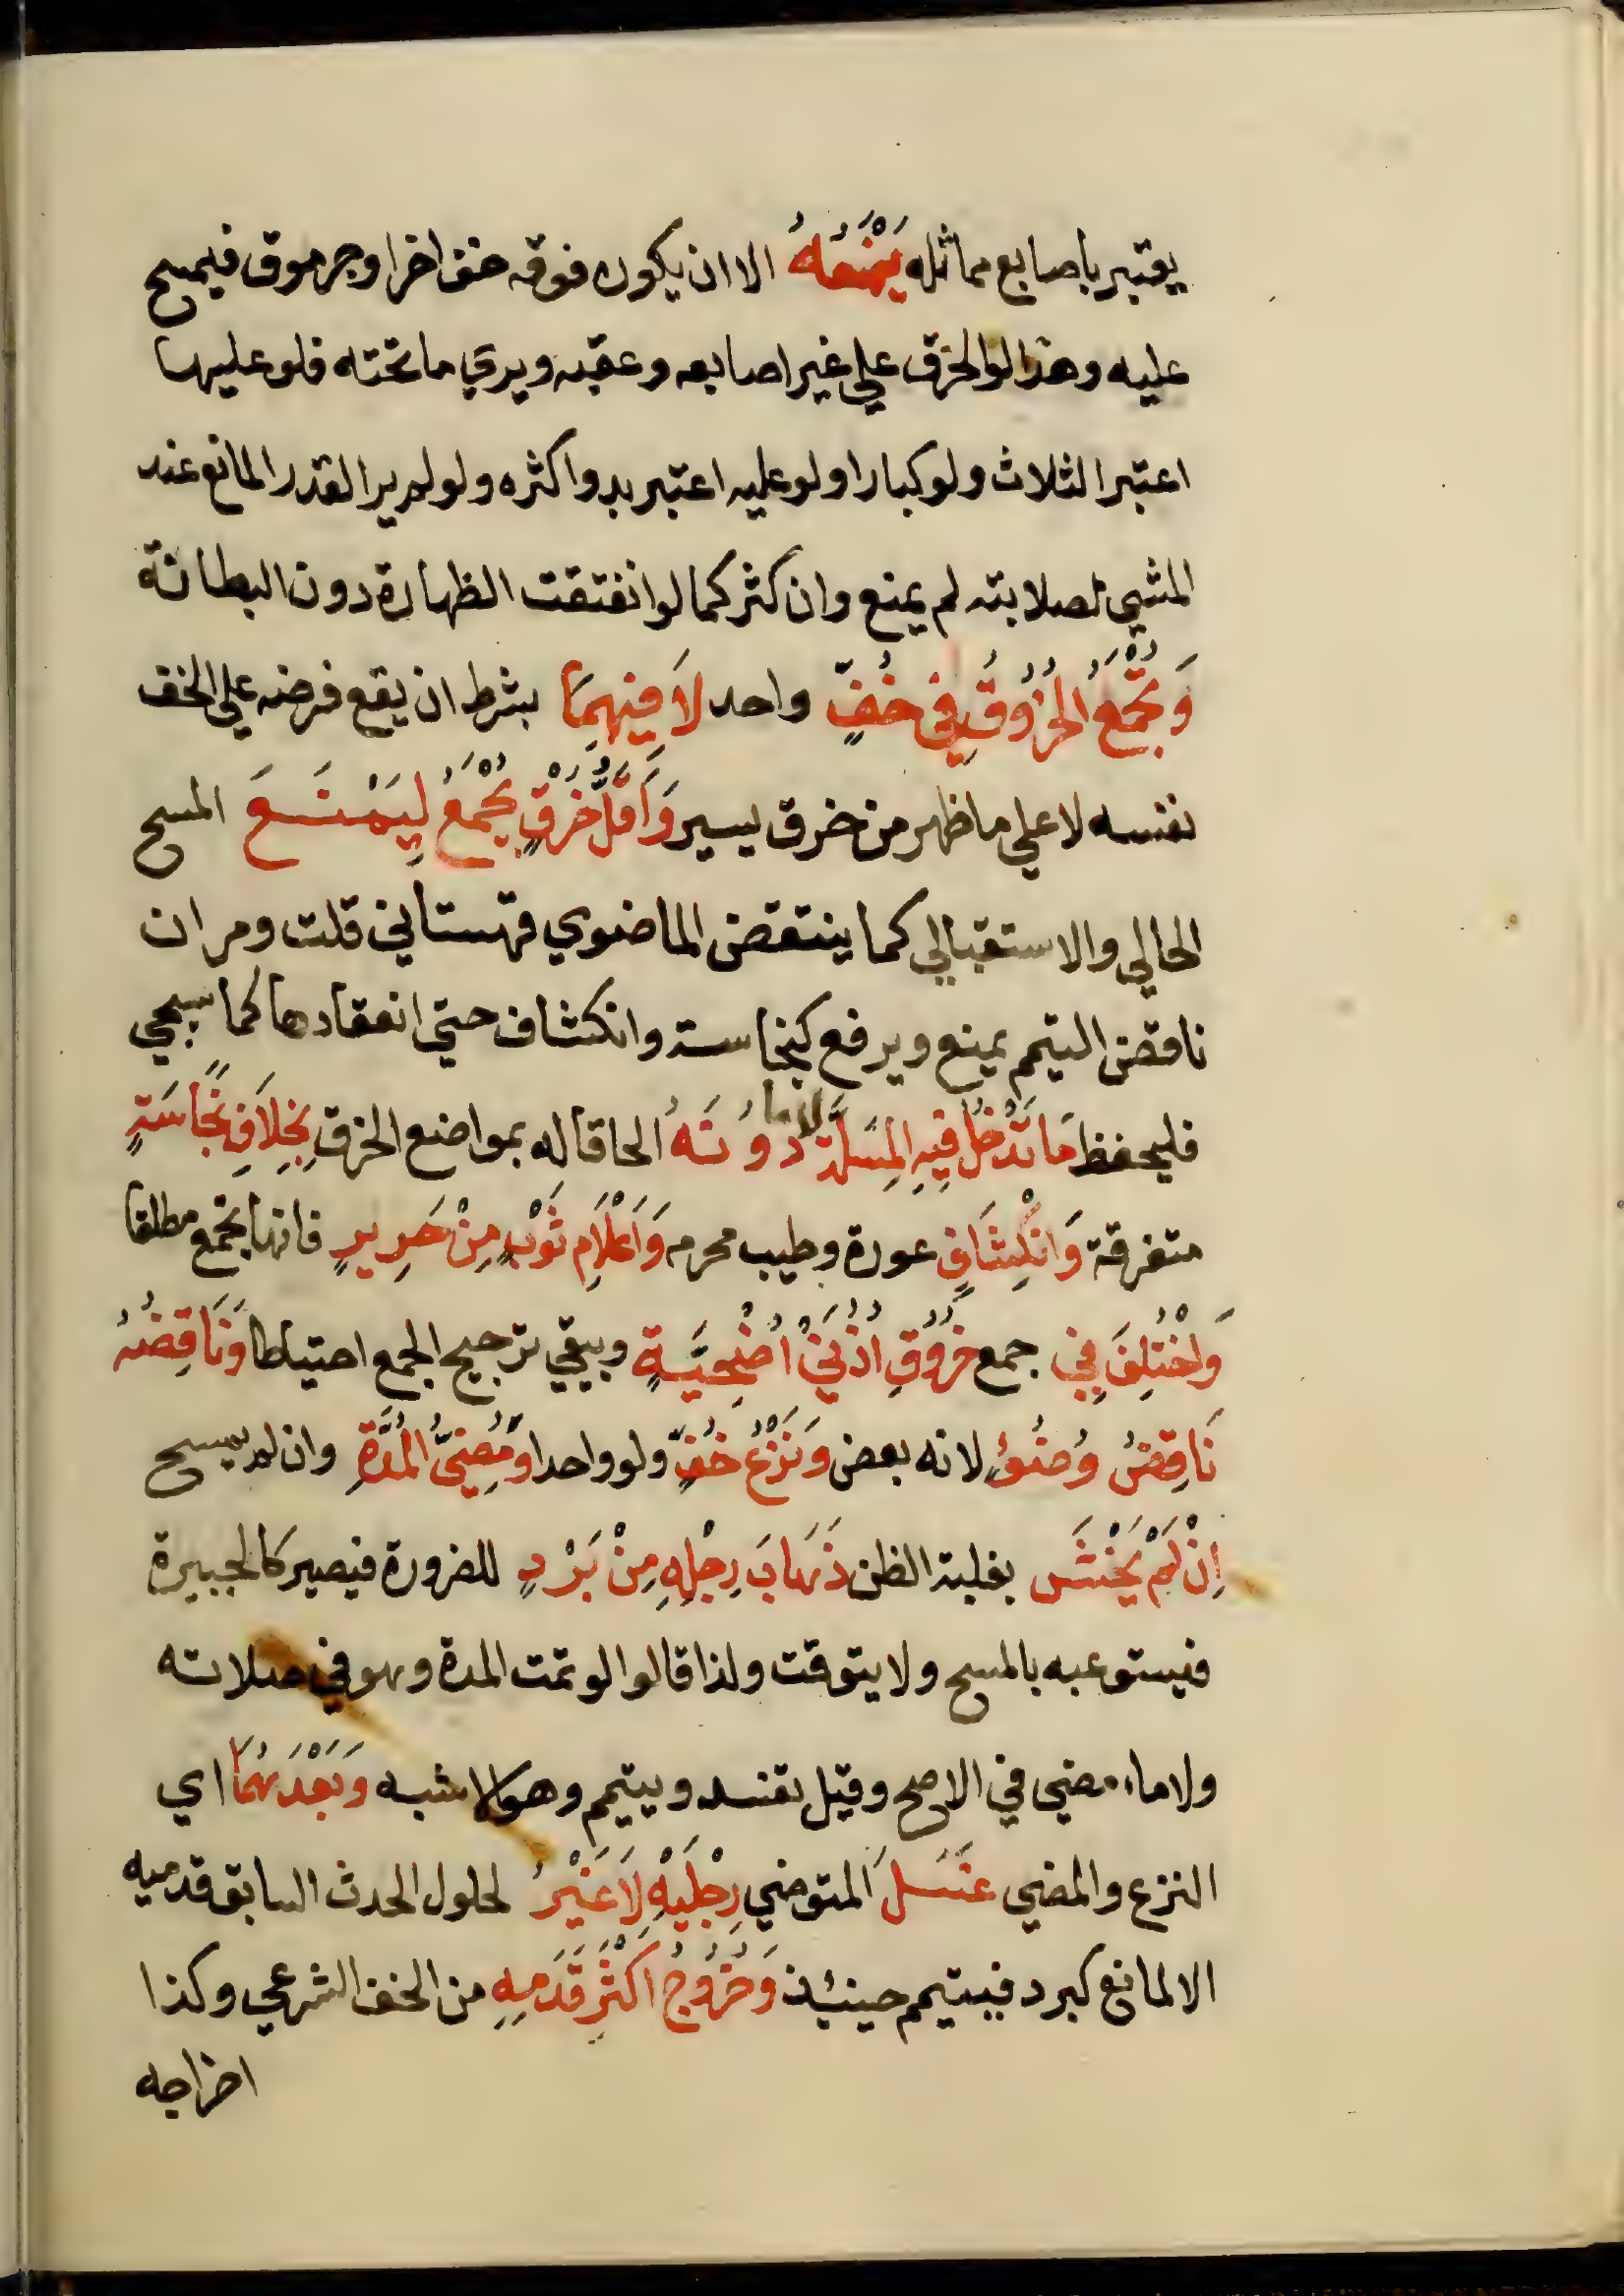 يعتبر باصابع مماثله يَمْنَعُهُ الا ان يكون فوقه خف اخر او جرموق فيمسح
عليه وهذا لو الخرق علي غير اصابعه وعقبه ويري ما تحته فلو عليها
اعتبر الثلاث ولو كبارا ولو عليه اعتبر بدو اكثره ولو لم ير القدر المانع عند
المشي لصلابته لم يمنع وان كثر كما لو انفتقت الظهارة دون البطانة
وَتُجْمَعُ الخُرُوقُ فِي خُفٍّ واحد لَا فِيهِمَا بشرط ان يقع فرضه علي الخف
نفسه لا علي ما ظهر من خرق يسير وَاَقَلُّ خَرْقٍ يُجْمَعُ لِيَمْنَعَ المسح
الحالي والاستقبالي كما ينتقض الماضوي قهستاني قلت ومر ان
ناقض التيمم يمنع ويرفع كنجاسة وانكشاف حتي انعقادها كما سيجي
فليحفظ مَا تَدْخُلُ فِيهِ المِسَلَّةُ لا مَا دُونَهُ الحاقا له بمواضع الخرز بِخِلَافِ نَجَاسَةٍ
متفرقة وَانْكِشَافِ عورة وطيب محرم وَاَعْلَامِ ثَوْبٍ مِنْ حَرِيرٍ فانها تجمع مطلقا
وَاخْتُلِفَ فِي جمع خُرُوقِ اُذُنَيْ اُضْحِيَّةٍ ويبقي ترجيح الجمع احتياطا وَنَاقِضُهُ
نَاقِضُ وُضُوْءٍ لانه بعض وَنَزْعُ خُفٍّ ولو واحدا وَمُضِيُّ المُدَّةِ وان لم يمسح
اِنْ لَمْ يَخْشَ بغلبة الظن ذَهَابَ رِجْلِهِ مِنْ بَرْدٍ للضرورة فيصير كالجبيرة
فيستوعبه بالمسح ولا يتوقت ولذا قالوا لو تمت المدة وهو في صلاته
ولا ماء مضي في الاصح وقيل تفسد ويتيمم وهو الاشبه وَبَعْدَهُمَا اي
النزع والمضي غَسَلَ المتوضي رِجْلَيْهِ لَا غَيْرُ لحلول الحدث السابق قدميه
الا لمانع كبرد فيتيمم حينئذ وَخُرُوجُ اَكْثَرِ قَدَمِهِ من الخف الشرعي وكذا
اخراجه